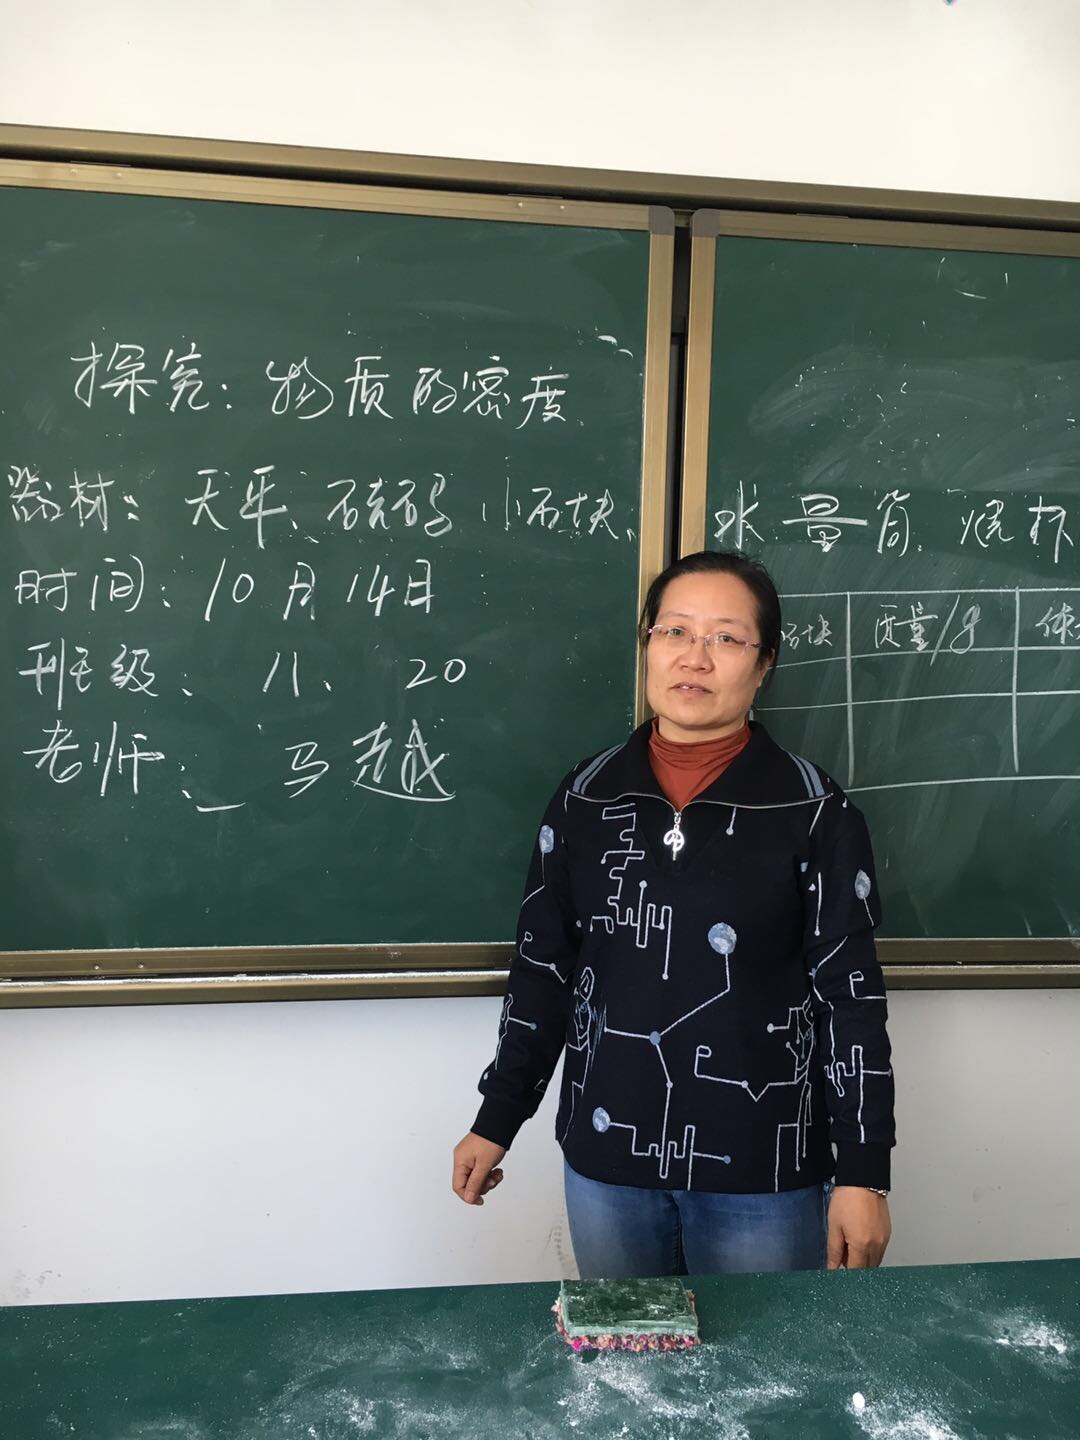 探究:物质的密度
器材:天平、砝码、小石块、水、量筒、烧杯
时间:10月14日
班级、八、20
老师:马越
石块 质量/g 体